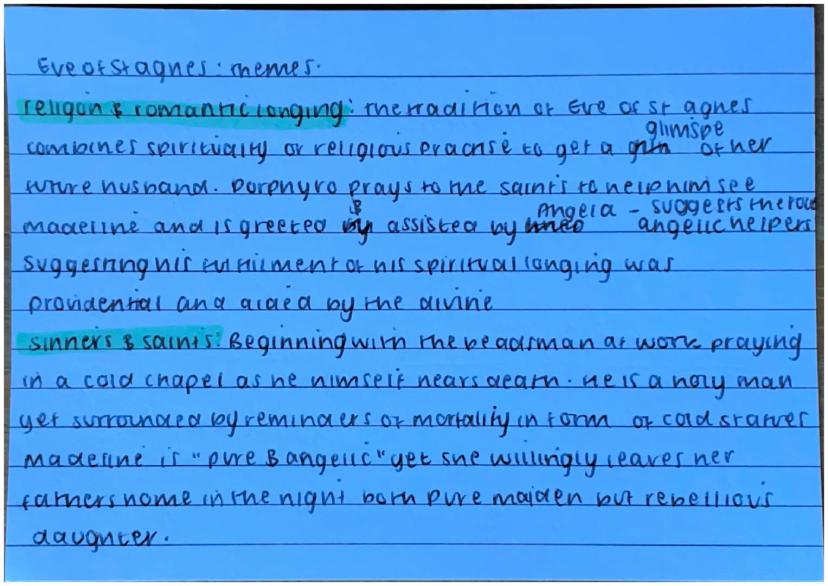 Eve of St agnes: themes.
religon & romantic longing: the tradition of Eve of St agnes
combines spirituality or religious practise to get a glimspe of her
future husband. Porphyro prays to the saints to help him see
madeline and is greeted & assisted by Angela - suggests the
angelic helpers
suggesting his fulfilment of his spiritual longing was
providential and aided by the divine
sinners & saints: Beginning with the beadsman at work praying
in a cold chapel as he himself nears death. He is a holy man
yet surrounded by reminders of mortality in form of cold statues
madeline is "pure & angelic" yet she willingly leaves her
fathers home in the night both pure maiden but rebellious
daughter.